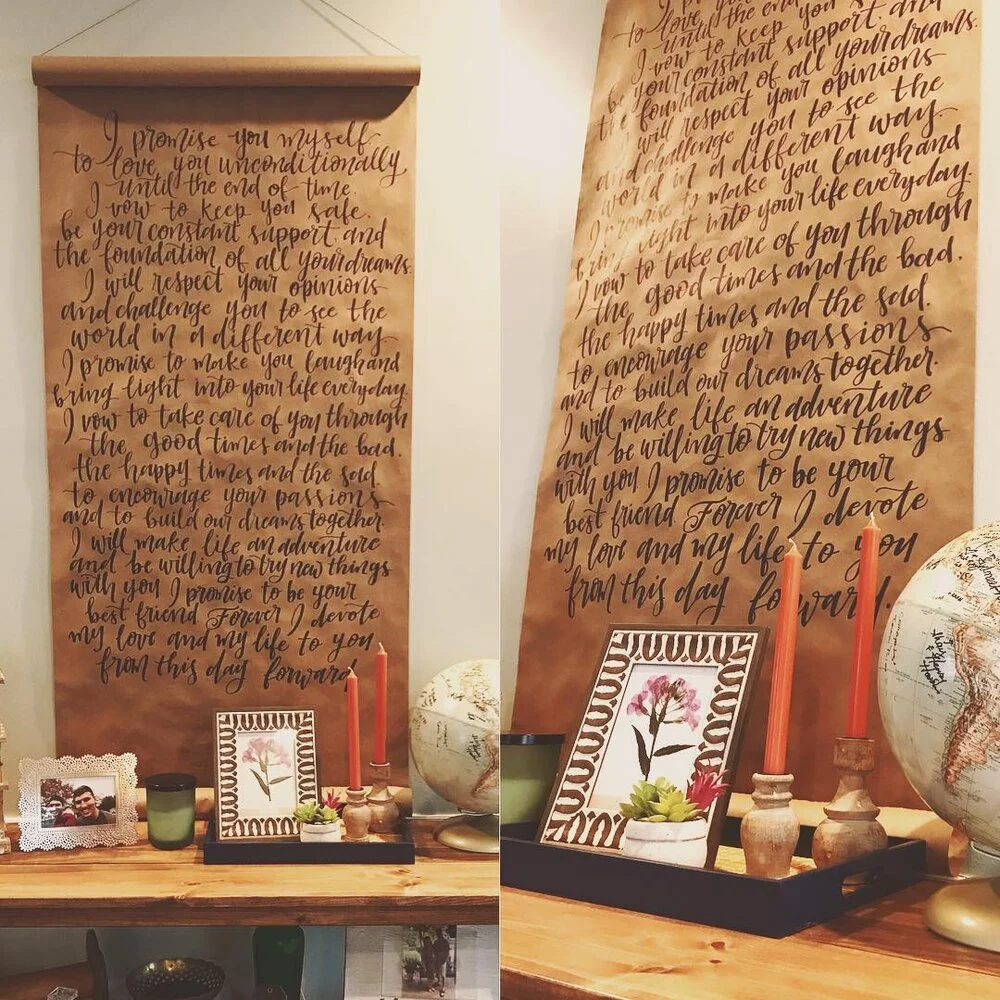 I promise you myself
to love you unconditionally
until the end of time.
I vow to keep you safe.
be your constant support. and
the foundation of all your dreams.
I will respect your opinions
and challenge you to see the
world in a different way.
I promise to make you laugh and
bring light into your life everyday.
I vow to take care of you through
the good times and the bad.
the happy times and the sad.
to encourage your passions
and to build our dreams together.
I will make life an adventure
and be willing to try new things
with you I promise to be your
best friend Forever I devote
my love and my life to you
from this day forward.
to love you
until the end
I vow to keep you
be your constant support. and
the foundation of all your dreams.
I will respect your opinions
and challenge you to see the
world in a different way.
I promise to make you laugh and
bring light into your life everyday.
I vow to take care of you through
the good times and the bad.
the happy times and the sad.
to encourage your passions
and to build our dreams together.
I will make life an adventure
and be willing to try new things
with you I promise to be your
best friend Forever I devote
my love and my life to you
from this day forward.